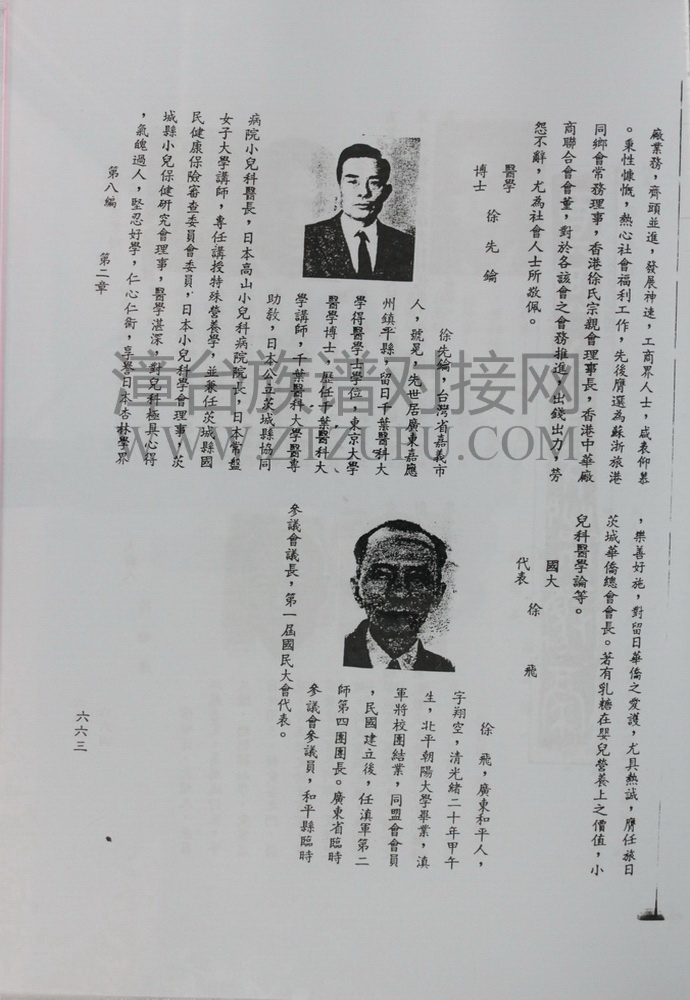 廠業務，齊頭並進，發展神速，工商界人士，咸表仰慕
。秉性慷慨，熱心社會福利工作，先後膺選為蘇浙旅港
同鄉會常務理事，香港徐氏宗親會理事長，香港中華廠
商聯合會會董，對於各該會之會務推進，出錢出力，勞
怨不辭，尤為社會人士所敬佩。
醫學
博士 徐先鑰
徐先鑰，台灣省嘉義市
人，號晃，先世居廣東嘉應
州鎮平縣，留日千葉醫科大
學得醫學士學位，東京大學
醫學博士，歷任千葉醫科大
學講師，千葉醫科大學醫專
助教，日本公立茨城縣協同
病院小兒科醫長，日本高山小兒科病院院長，日本常盤
女子大學講師，專任講授特殊營養學，並兼任茨城縣國
民健康保險審查委員會委員，日本小兒科學會理事，茨
城縣小兒保健研究會理事，醫學湛深，對兒科極具心得
，氣魄過人，堅忍好學，仁心仁術，享譽日本杏林學界
，樂善好施，對留日華僑之愛護，尤具熱誠，膺任旅日
茨城華僑總會會長。著有乳糖在嬰兒營養上之價值，小
兒科醫學論等。
國大
代表 徐飛
徐飛，廣東和平人，
字翔空，清光緒二十年甲午
生，北平朝陽大學畢業，滇
軍將校團結業，同盟會會員
，民國建立後，任滇軍第二
師第四團團長。廣東省臨時
參議會參議員，和平縣臨時
參議會議長，第一屆國民大會代表。
第八編 第二章
六六三
谱台族谱对接网
WWW.ZIZUFU.COM